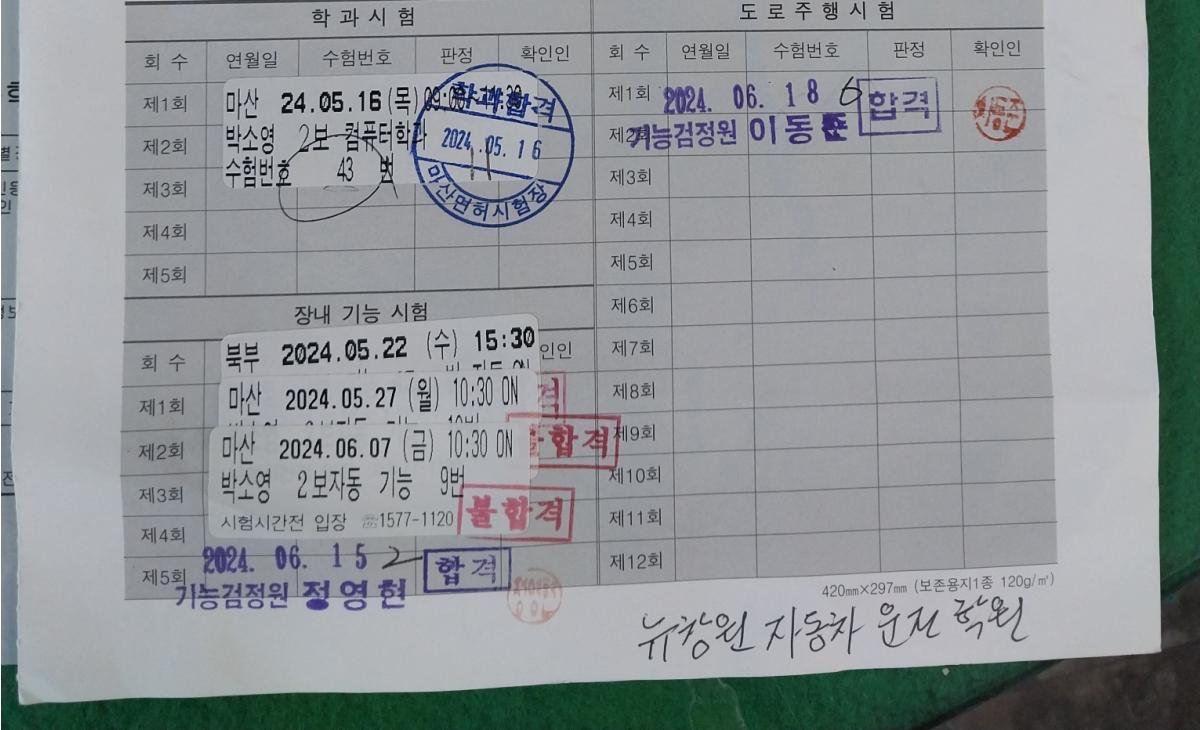 학 과 시 험
회 수 연월일 수험번호 판정 확인인
제1회 마산 24.05.16 (목)
제2회 박소영 2보 컴퓨터학과
수험번호 43 번
제3회
제4회
제5회
학과합격
2024. 05. 16
마산면허시험장
장내 기능 시험
회 수 북부 2024.05.22 (수) 15:30 인인
제1회 마산 2024.05.27 (월) 10:30 ON 격
제2회 마산 2024.06.07 (금) 10:30 ON 합격
제3회 박소영 2보자동 기능 9번
시험시간전 입장 ☏1577-1120 불합격
제4회
2024. 06. 15 2 합격
제5회 기능검정원 정영현
도 로 주 행 시 험
회 수 연월일 수험번호 판정 확인인
제1회 2024. 06. 18 6 합격
제2회 기능검정원 이동준
제3회
제4회
제5회
제6회
제7회
제8회
제9회
제10회
제11회
제12회
420mm×297mm (보존용지1종 120g/㎡)
뉴창원 자동차 운전 학원